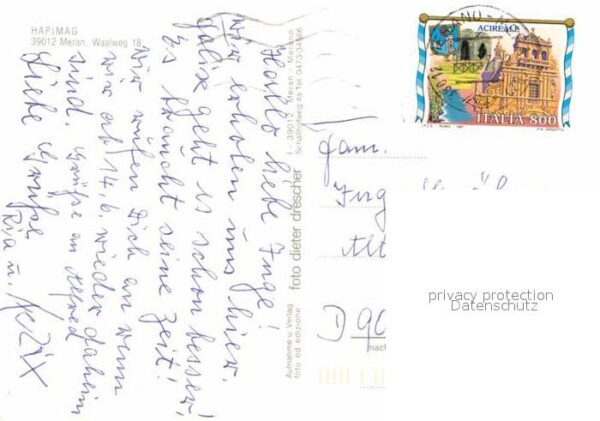 HAPIMAG
39012 Meran, Waalweg 18
Hallo liebe Inge!
wir erholen uns hier.
Felix geht es schon besser!
Es braucht seine Zeit!
Wir rufen Dich an wenn
wir ab 14.6. wieder daheim
sind. Grüße an Alfred
Liebe Grüße
Ria u. Felix
Aufnahme u. Verlag
foto ed edizione
foto dieter drescher
I - 39012 Meran - Merano
ACIREALE
ITALIA 800
Fam.
Inge
D 90
nach
privacy protection
Datenschutz